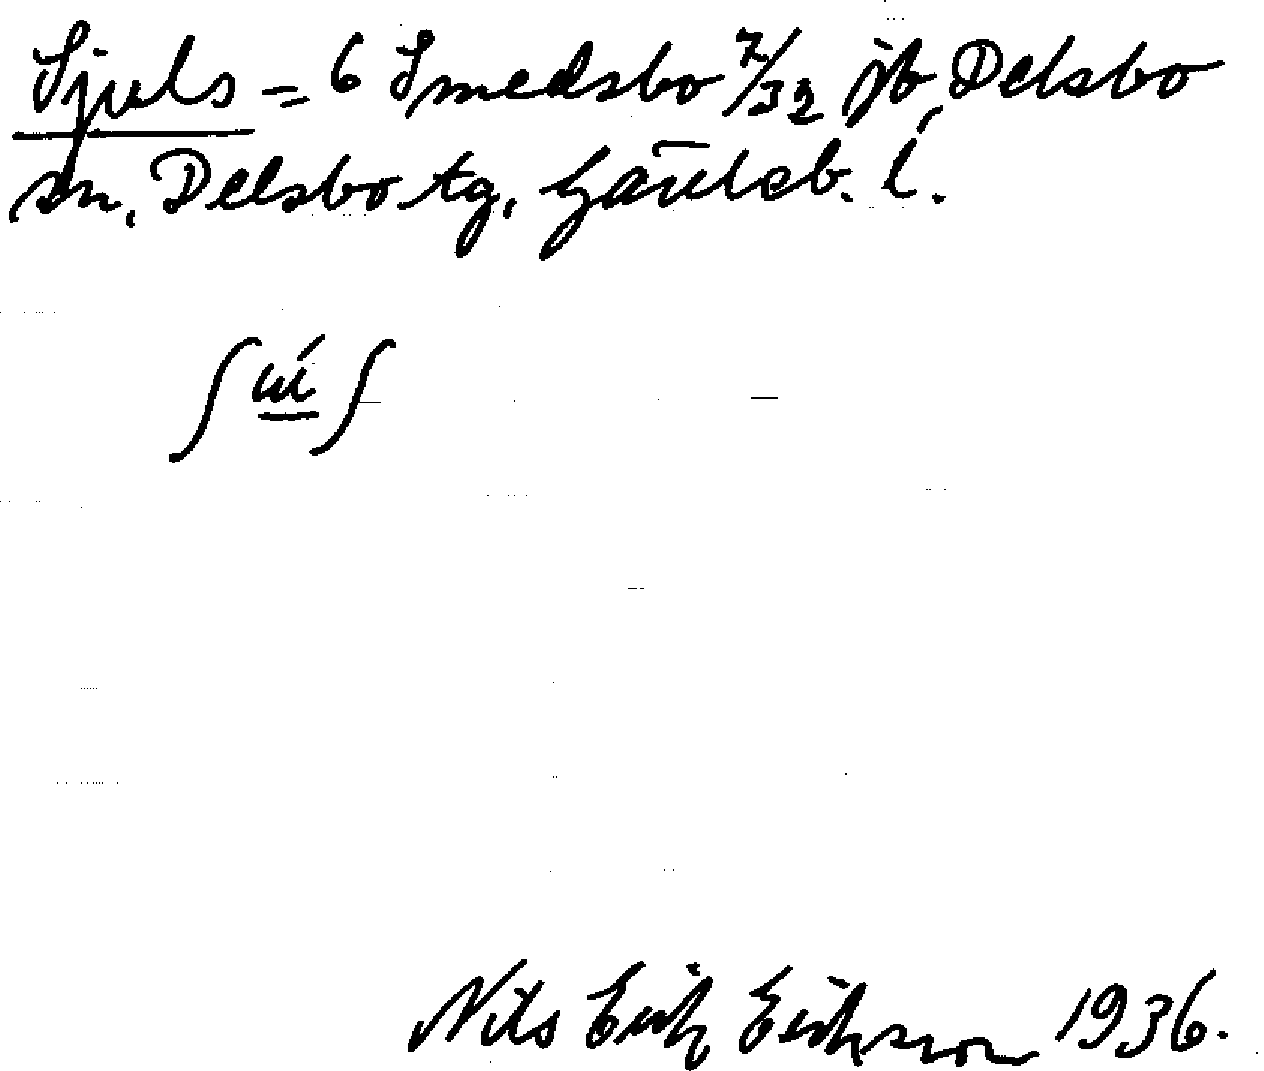 Sjuls = 6 Smedsbo 7/32 jb Delsbo
sn, Delsbo tg, Gävleb. l.
Nils Erik Erikson 1936.